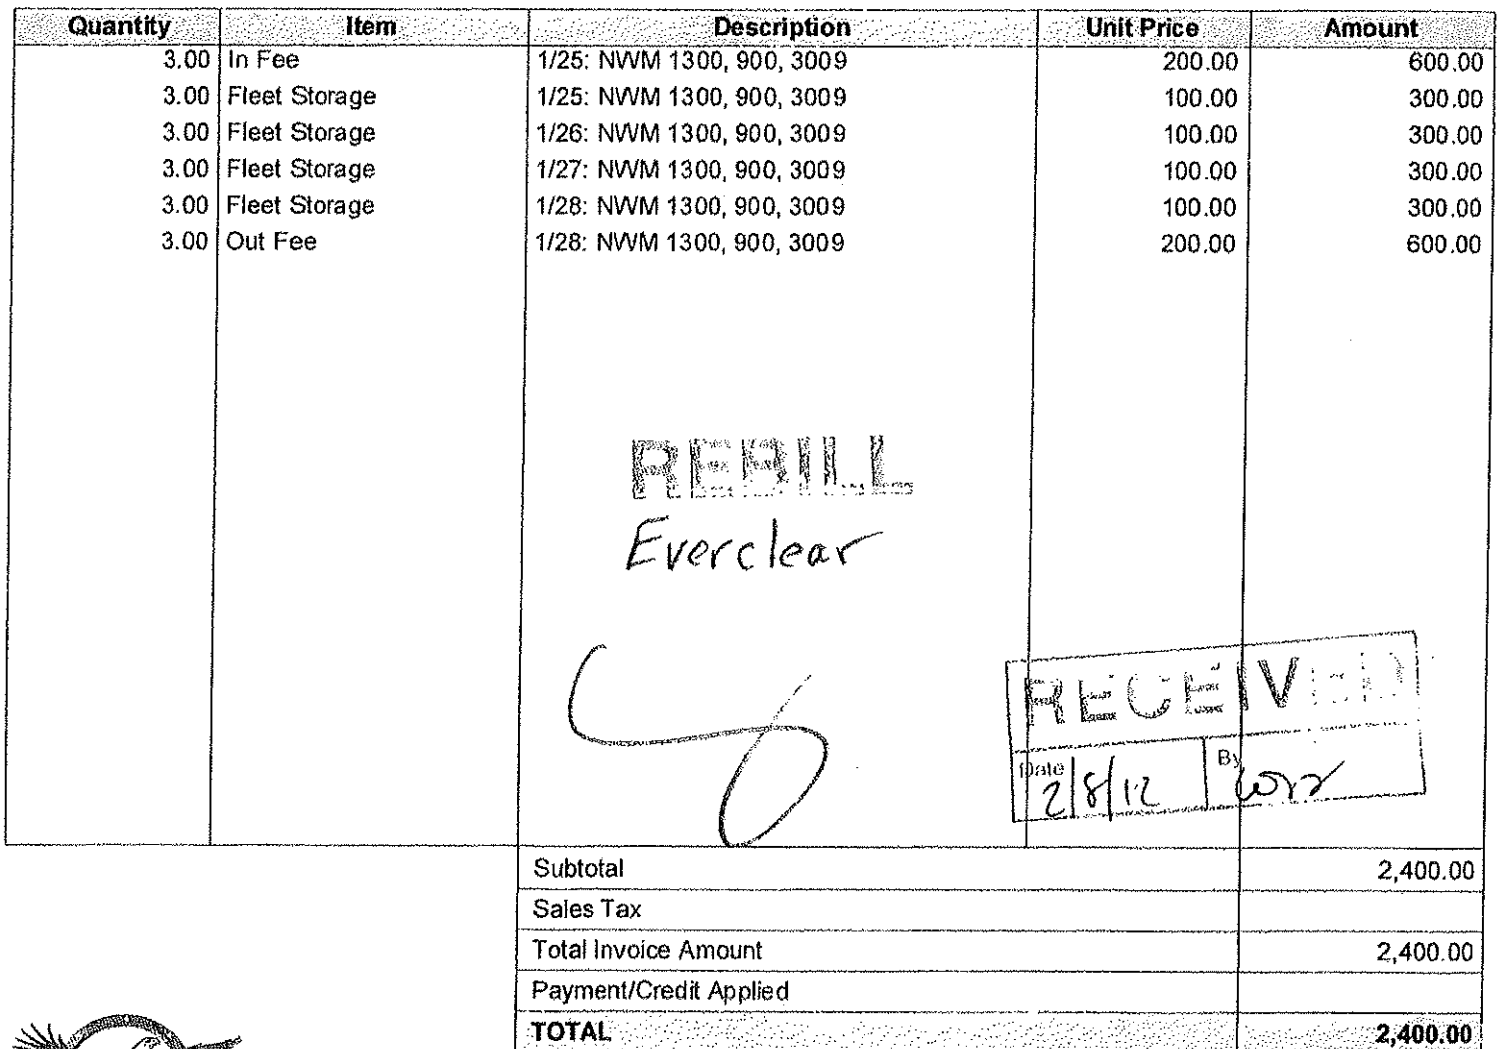 Quantity Item Description Unit Price Amount
3.00 In Fee 1/25: NWM 1300, 900, 3009 200.00 600.00
3.00 Fleet Storage 1/25: NWM 1300, 900, 3009 100.00 300.00
3.00 Fleet Storage 1/26: NWM 1300, 900, 3009 100.00 300.00
3.00 Fleet Storage 1/27: NWM 1300, 900, 3009 100.00 300.00
3.00 Fleet Storage 1/28: NWM 1300, 900, 3009 100.00 300.00
3.00 Out Fee 1/28: NWM 1300, 900, 3009 200.00 600.00
REBILL
Everclear
RECEIVED
Date By
2/8/12
Subtotal 2,400.00
Sales Tax
Total Invoice Amount 2,400.00
Payment/Credit Applied
TOTAL 2,400.00